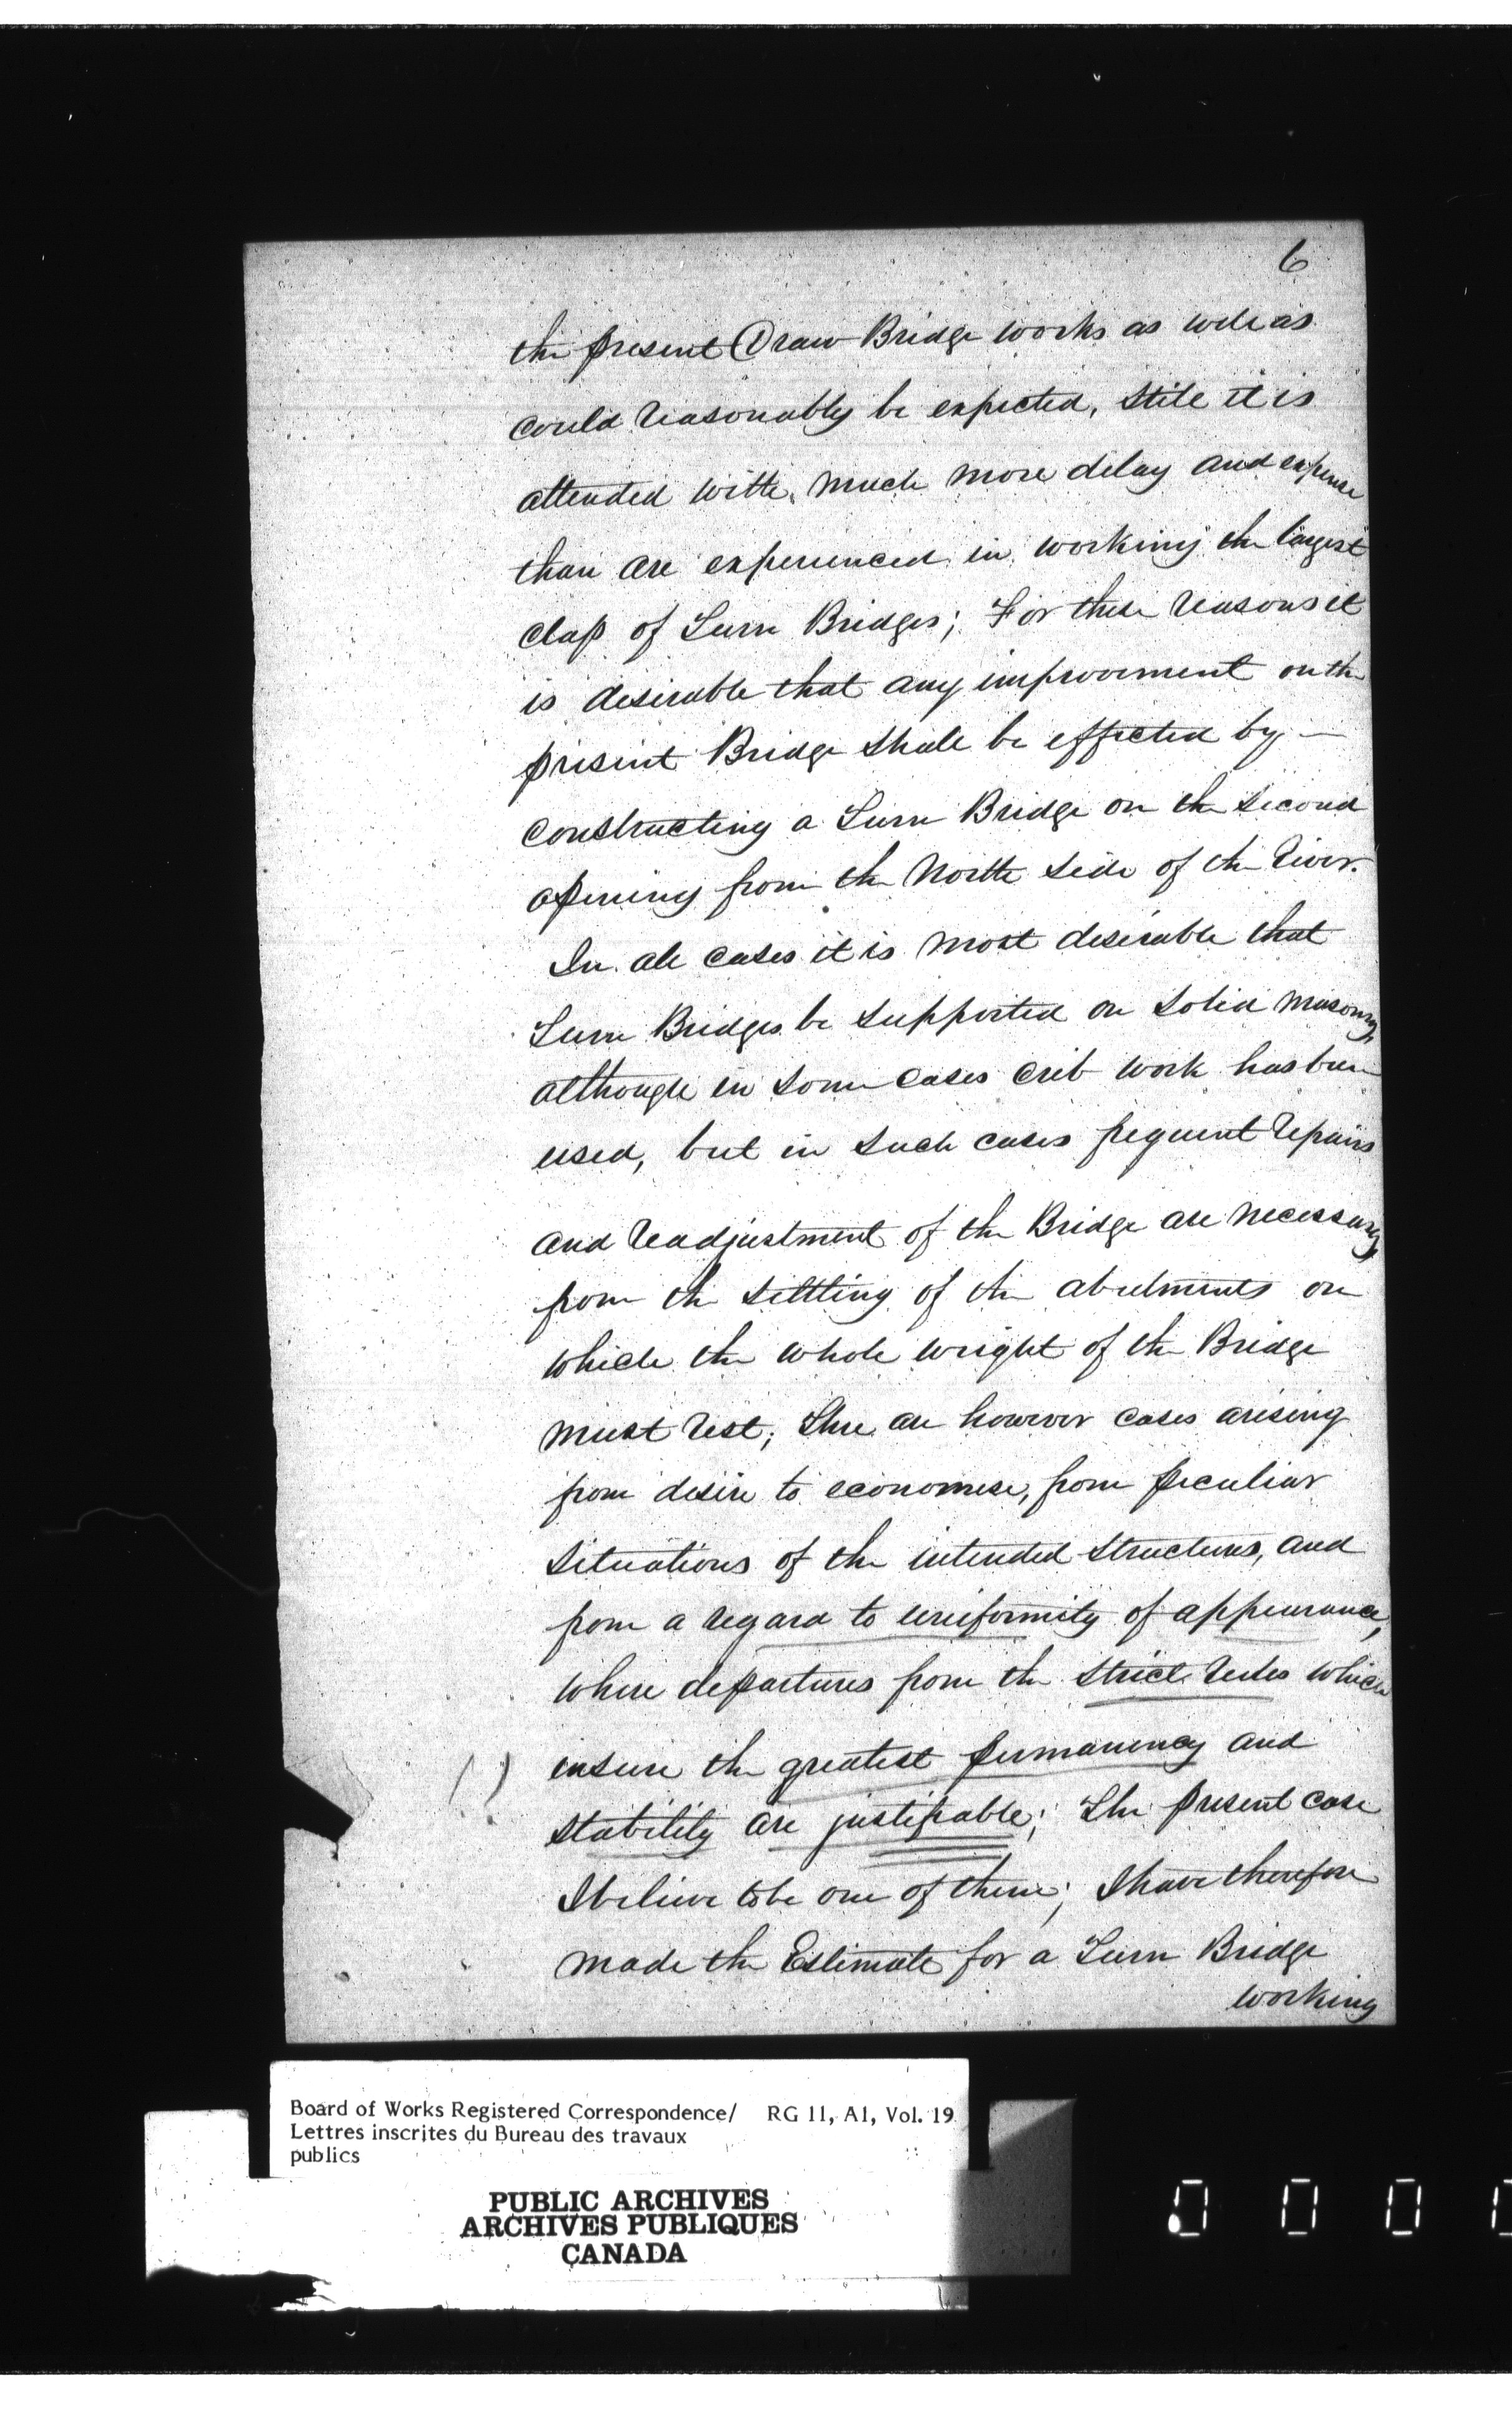 6
the present Draw Bridge works as well as
could reasonably be expected, still it is
attended with much more delay and expense
than are experienced in working the largest
class of Turn Bridges; For these reasons it
is desirable that any improvement on the
present Bridge shall be effected by —
constructing a Turn Bridge on the second
opening from the North side of the River.
In all cases it is most desirable that
Turn Bridges be supported on solid masonry,
although in some cases crib work has been
used, but in such cases frequent repairs
and readjustment of the Bridge are necessary,
from the settling of the abutments on
which the whole weight of the Bridge
must rest; There are however cases arising
from desire to economise, from peculiar
situations of the intended structures, and
from a regard to uniformity of appearance,
where departures from the strict rules which
( ) ensure the greatest permanency and
stability are justifiable; The present case
I believe to be one of them; I have therefore
made the Estimate for a Turn Bridge
working
Board of Works Registered Correspondence/ RG 11, A1, Vol. 19
Lettres inscrites du Bureau des travaux
publics
PUBLIC ARCHIVES
ARCHIVES PUBLIQUES
CANADA
0 0 0